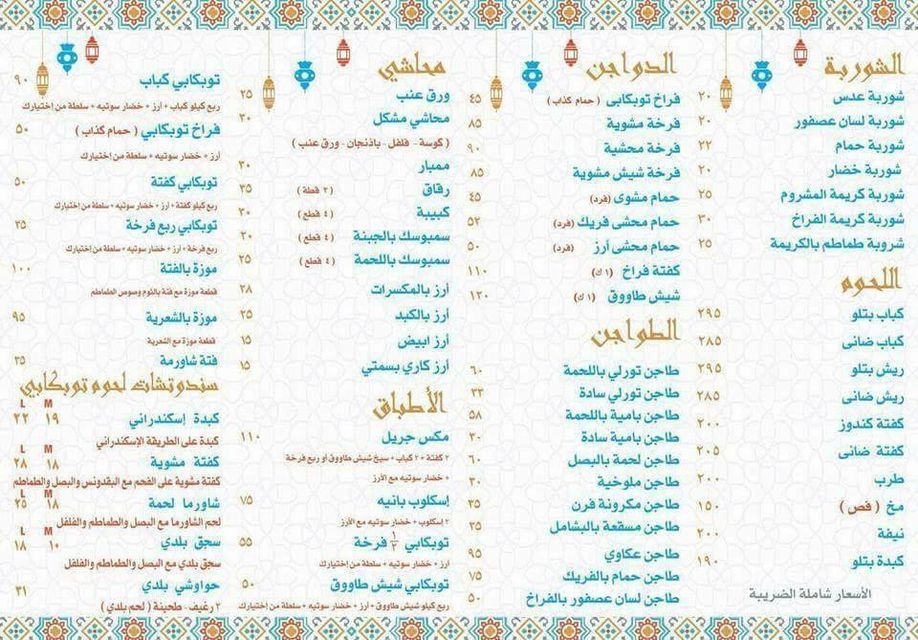 الشوربة
شوربة عدس ٢٠
شوربة لسان عصفور ٢٠
شوربة حمام ٢٢
شوربة خضار ٢٠
شوربة كريمة المشروم ٢٥
شوربة كريمة الفراخ ٣٠
شروبة طماطم بالكريمة ٢٥
اللحوم
كباب بتلو ٢٩٥
كباب ضانى ٢٨٥
ريش بتلو ٢٩٥
ريش ضانى ٢٨٥
كفتة كندوز ٢٠٠
كفتة ضانى ٢٠٥
طرب ٢٠٠
مخ ( فص ) ١٥٠
نيفة
كبدة بتلو ١٩٠
الأسعار شاملة الضريبة
الدواجن
فراخ توبكابى ( حمام كذاب ) ٤٥
فرخة مشوية ٨٥
فرخة محشية ٩٠
فرخة شيش مشوية ٨٥
حمام مشوى (فرد) ٤٥
حمام محشى فريك (فرد) ٥٢
حمام محشى أرز (فرد) ٥٠
كفتة فراخ (١ ك) ١١٠
شيش طاووق (١ ك) ١٢٠
الطواجن
طاجن تورلي باللحمة ٦٠
طاجن تورلي سادة ٣٣
طاجن بامية باللحمة ٥٨
طاجن بامية سادة ٣٠
طاجن لحمة بالبصل ٦٠
طاجن ملوخية ٣٠
طاجن مكرونة فرن ٣٥
طاجن مسقعة بالبشامل ٢٥
طاجن عكاوي ٩٥
طاجن حمام بالفريك ٧٥
طاجن لسان عصفور بالفراخ ٥٠
محاشي
ورق عنب ٢٥
محاشي مشكل ٣٠
( كوسة - فلفل - باذنجان - ورق عنب )
ممبار ٣٠
رقاق ( ٢ قطة ) ٣٥
كبيبة ( ٤ قطع ) ٣٠
سمبوسك بالجبنة ( ٤ قطع ) ٢٠
سمبوسك باللحمة ( ٤ قطع ) ٢٥
أرز بالمكسرات ٢٨
أرز بالكبد ٢٥
أرز ابيض ١٥
أرز كاري بسمتي ١٥
الأطباق
مكس جريل ١١٠
٢ كفتة + ٢ كباب + سيخ شيش طاووق أو ربع فرخة
+ خضار سوتيه مع الأرز
إسكلوب بانيه ٧٥
٢ إسكلوب + خضار سوتيه مع الأرز
توبكابي ½ فرخة ٥٥
أرز + خضار سوتيه + سلطة من إختيارك
توبكابي شيش طاووق ٥٠
ربع كيلو شيش طاووق + أرز + خضار سوتيه + سلطة من إختيارك
توبكابي كباب ٩٠
ربع كيلو كباب + أرز + خضار سوتيه + سلطة من إختيارك
فراخ توبكابي ( حمام كذاب ) ٥٠
أرز + خضار سوتيه + سلطة من إختيارك
توبكابي كفتة ٥٠
ربع كيلو كفتة + أرز + خضار سوتيه + سلطة من إختيارك
توبكابي ربع فرخة ٣٥
ربع فرخة + أرز + خضار سوتيه + سلطة من إختيارك
موزة بالفتة ١٠٠
قطعة موزة مع فتة بالثوم وصوص الطماطم
موزة بالشعرية ٩٥
قطعة موزة مع الشعرية
فتة شاورمة ٣٥
سندوتشات لحوم توبكابي
M L
كبدة إسكندراني ١٩ ٢٢
كبدة على الطريقة الإسكندراني
M L
كفتة مشوية ١٨ ٢٨
كفتة مشوية على الفحم مع البقدونس والبصل والطماطم
M L
شاورما لحمة ١٨ ٢٥
لحم الشاورما مع البصل والطماطم والفلفل
M L
سجق بلدي ١٠ ١٨
سجق بلدي مع البصل والطماطم والفلفل
حواوشي بلدي ٣١
٢ رغيف - طحينة ( لحم بلدي )